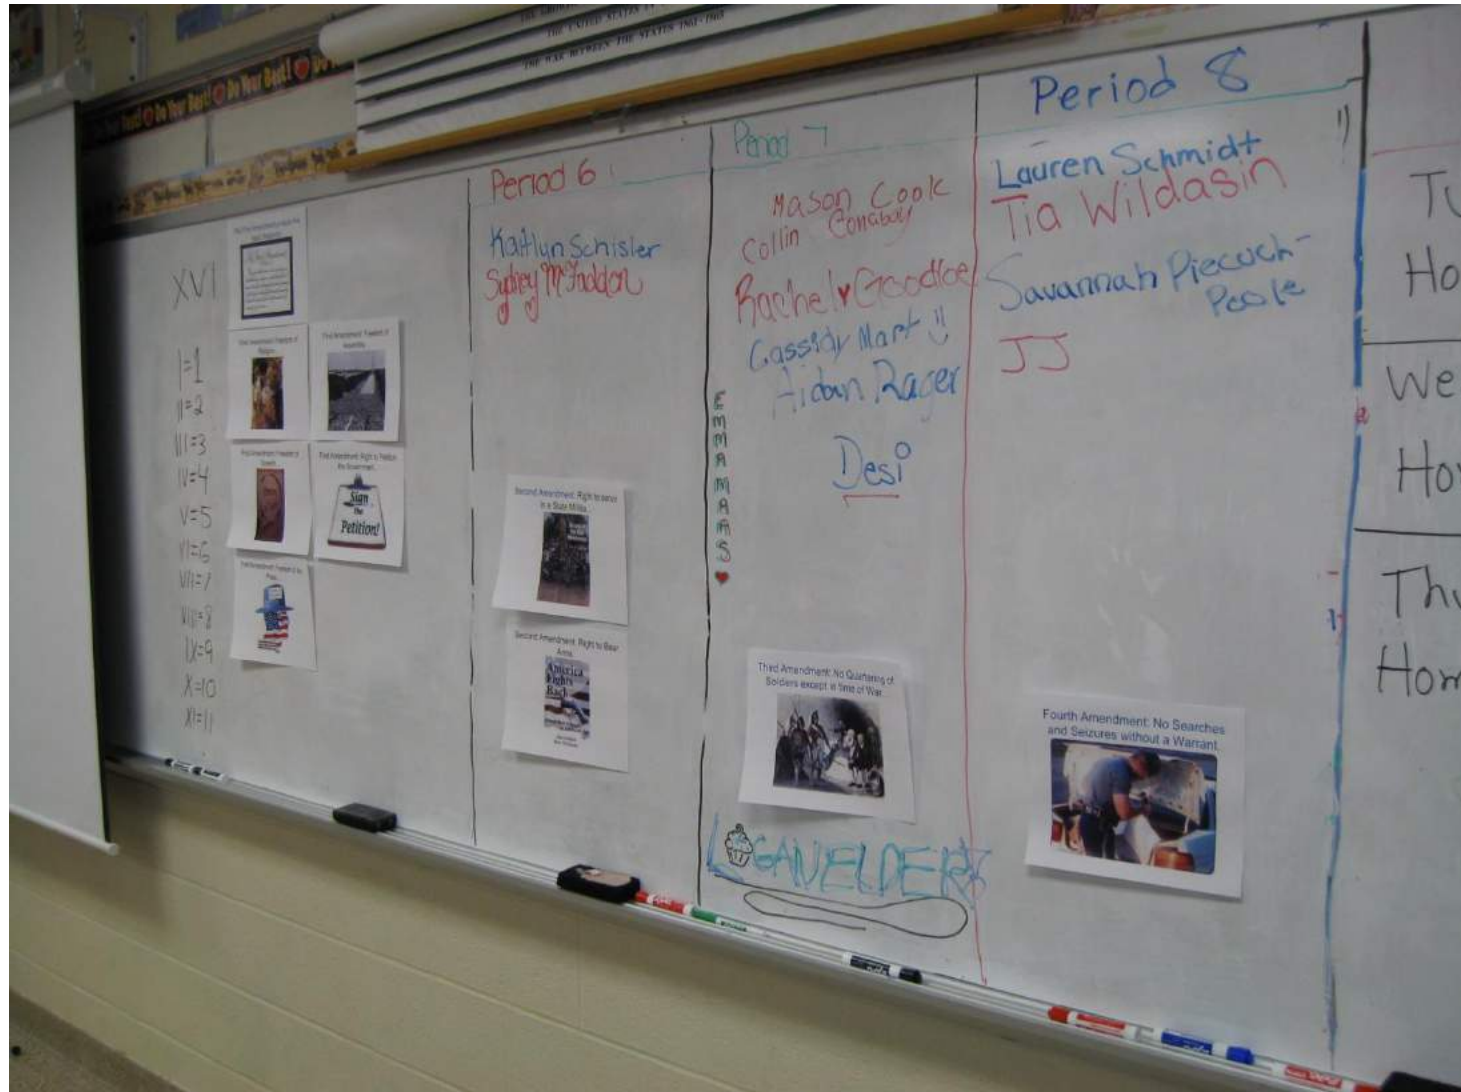 THE UNITED STATES IN
THE WAR BETWEEN THE STATES 1861-1865
Do Your Best! Do Your Best! Do
XVI
I=1
II=2
III=3
IV=4
V=5
VI=6
VII=7
VIII=8
IX=9
X=10
XI=11
First Amendment: Freedom of
Religion
First Amendment: Freedom of
Assembly
First Amendment: Freedom of
Speech
First Amendment: Right to Petition
the Government
Sign
the
Petition!
First Amendment: Freedom of the
Press
Period 6
Kaitlyn Schisler
Sydney McFaddon
Second Amendment: Right to serve
in a State Militia
Second Amendment: Right to Bear
Arms
America
Fights
Back
Period 7
Mason Cook
Collin Conaboy
Rachel Goodloe
Cassidy Mart
Aidan Rager
Desi
EMMAMAAS
Third Amendment: No Quartering of
Soldiers except in time of War
LOGANELDER
Period 8
Lauren Schmidt
Tia Wildasin
Savannah Piecuch-
Poole
JJ
Fourth Amendment: No Searches
and Seizures without a Warrant.
Tu
Ho
We
Ho
Thu
Hom